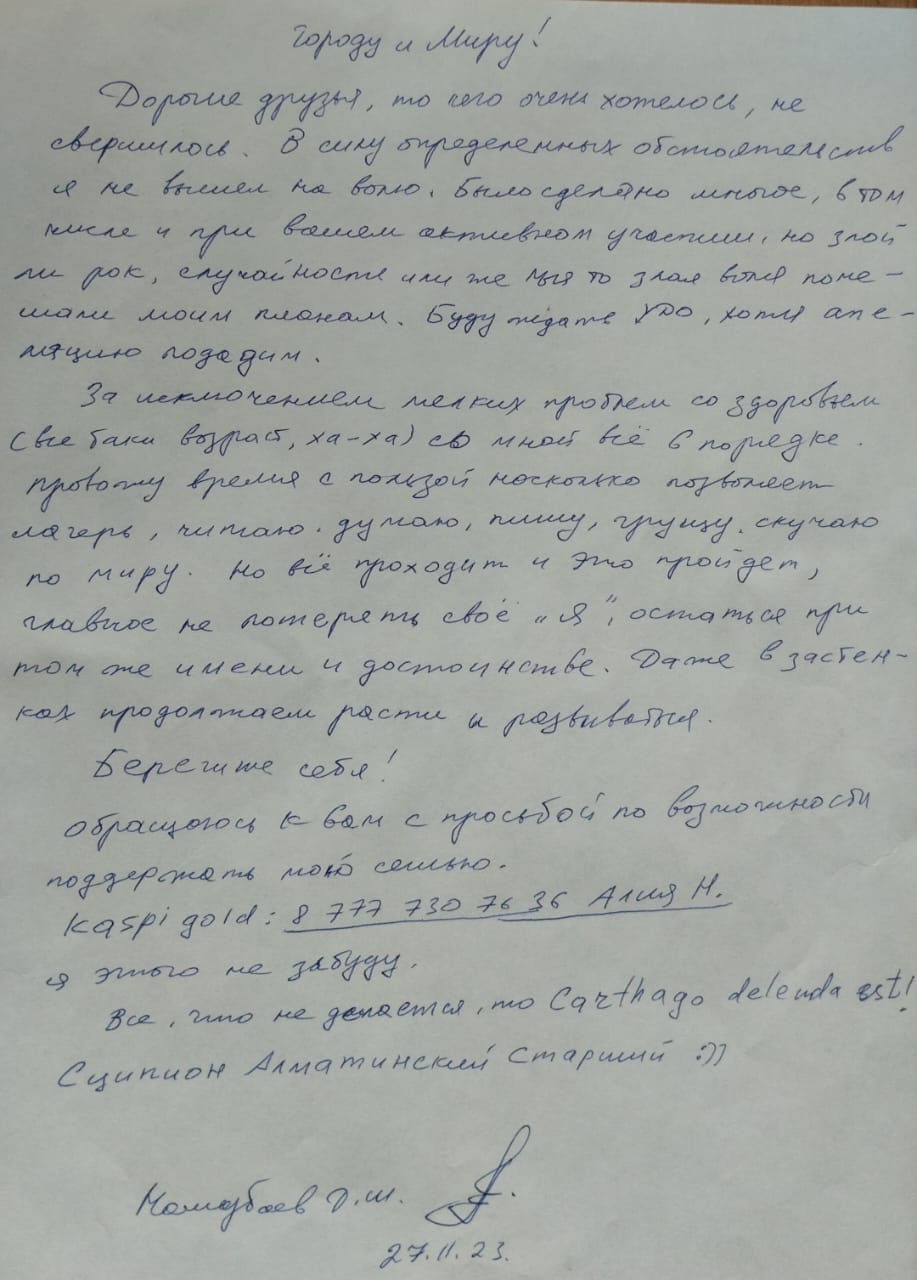 Городу и Миру!
Дорогие друзья, то чего очень хотелось, не
свершилось. В силу определенных обстоятельств
я не вышел на волю. Было сделано многое, в том
числе и при вашем активном участии, но злой
ли рок, случайности или же чья то злая воля поме-
шали моим планам. Буду ждать УДО, хотя апе-
ляцию подадим.
За исключением мелких проблем со здоровьем
(все таки возраст, ха-ха) со мной всё в порядке.
Провожу время с пользой насколько позволяет
лагерь, читаю. думаю, пишу, грущу. скучаю
по миру. Но всё проходит и это пройдет,
главное не потерять своё "Я", остаться при
том же имени и достоинстве. Даже в застен-
ках продолжаем расти и развиваться.
Берегите себя!
Обращаюсь к вам с просьбой по возможности
поддержать мою семью.
Kaspi gold: 8 777 730 76 36 Алия Н.
я этого не забуду.
Все, что не делается, то Carthago delenda est!
Сципион Алматинский Старший :))
Д.Ш.
27.11.23.